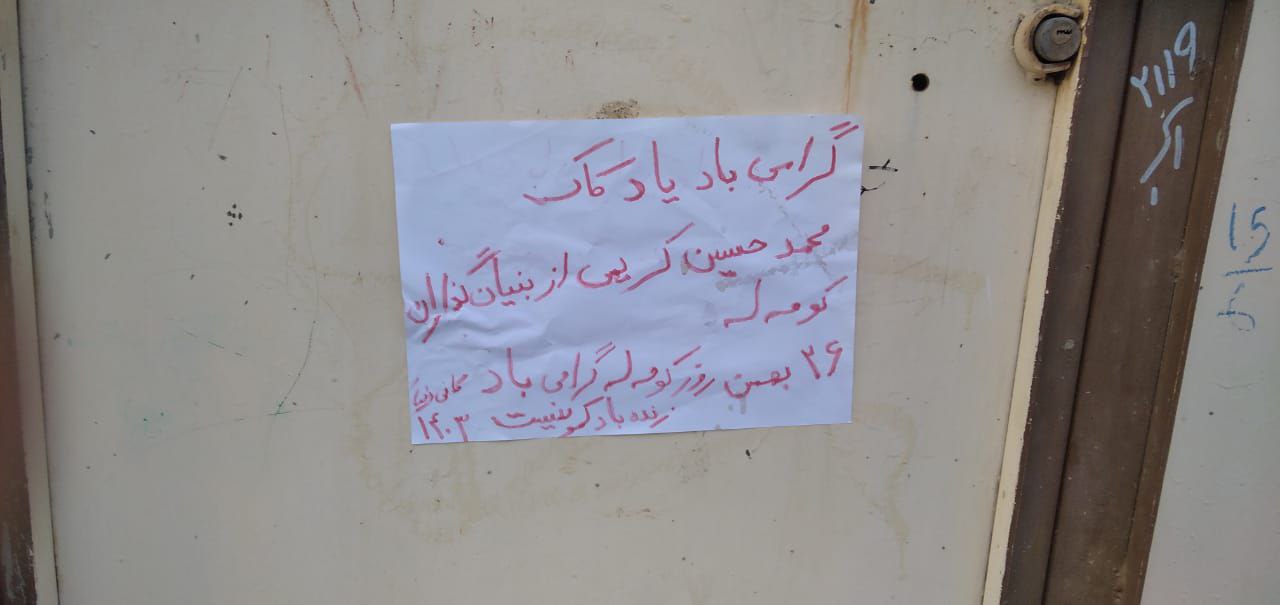 گرامی باد یاد کاک
محمد حسین کریمی از بنیان گذاران
کومه له
۲۶ بهمن روز کومه له گرامی باد
زنده باد کمونیست ۱۴۰۳
۲۱۱۹